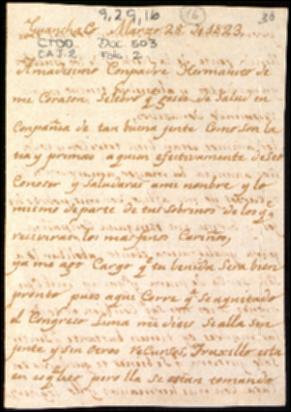 9, 29, 16
16
38
Huancha Co Marzo 28 de 1823
CTDO Doc 503
CAJ. 2 Fol. 2
Amadisimo Conpadre Hermano de
me Corason Selebro goses de Salud en
Conpañia de tan buena jente Como Son la
tia y primas a quien efectivamente deseo
Conoser y Saludaras ame nonbre y lo
mismo departe de tus Sobrinos de los qe
reseviran los mas finos Cariños,
ya me ago Cargo qe tu benida Sera bien
pronto pues aqui Corre qe Se aquitado
el Congreso Luma me dises Se alla Sen
jente y Sin otros recursos Truxillo esta
en es qlier pero lla Se estan tomando